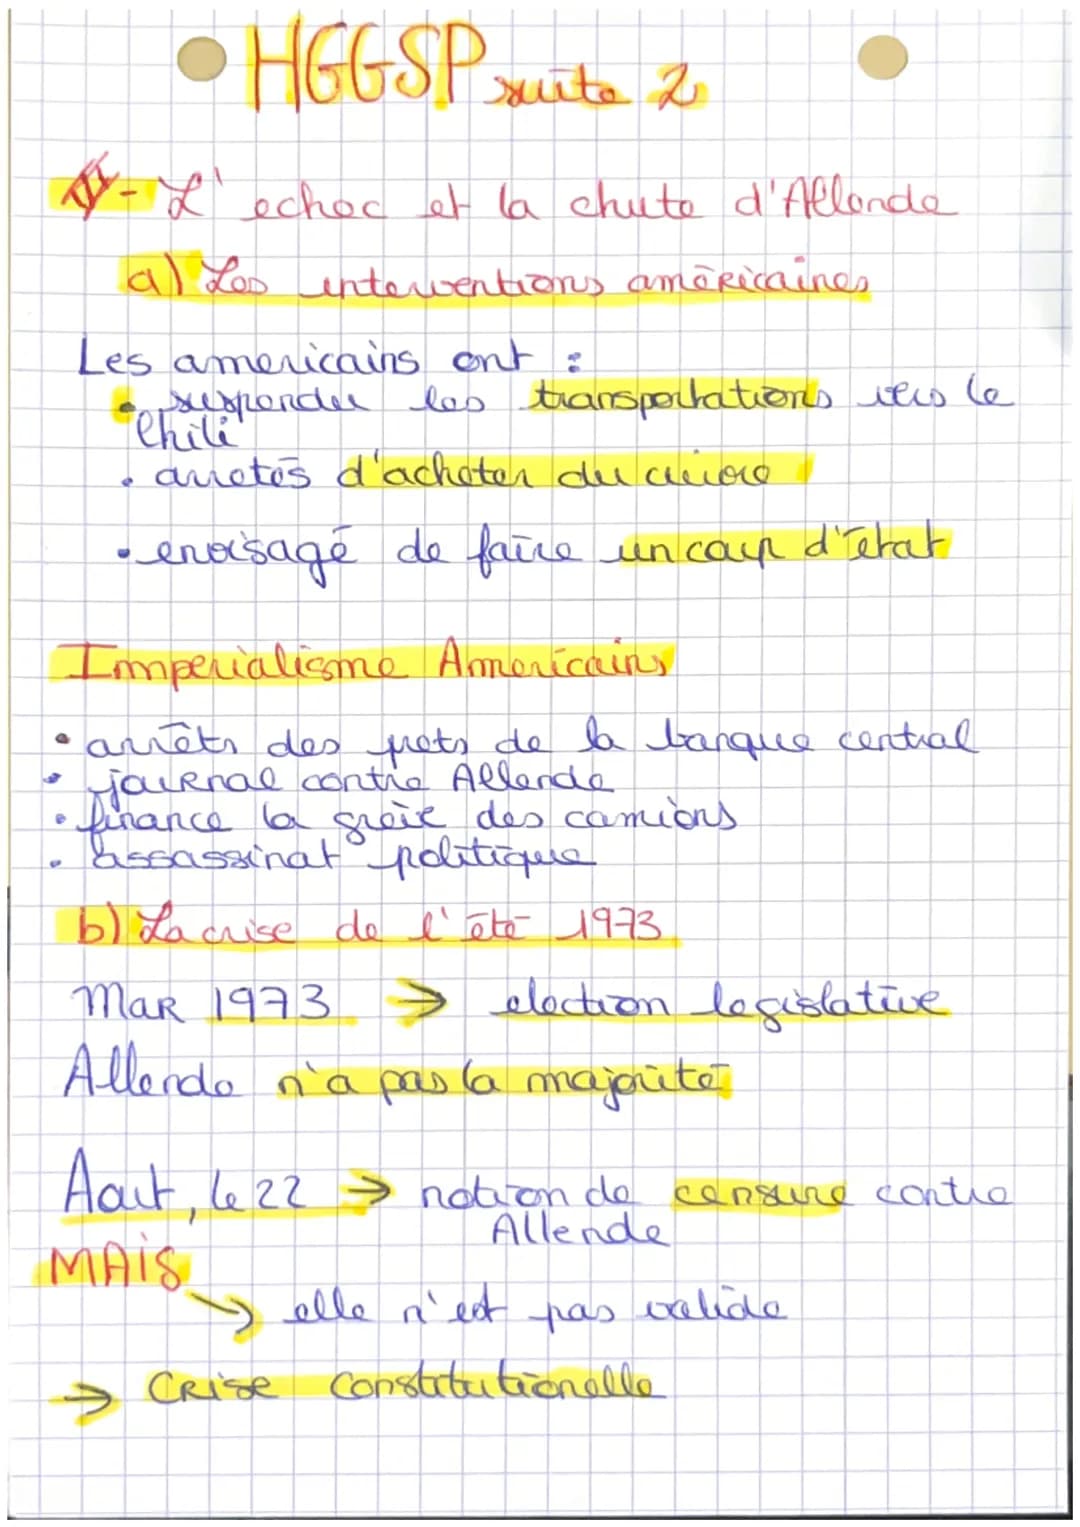 HGGSP suite 2
II - L'echec et la chute d'Allende
a) Les interventions américaines
Les americains ont :
• suspendu les transportations vers le
Chili
• arretés d'acheter du cuivre
• envisagé de faire un coup d'état
Imperialisme Americains
• arrêts des prets de la banque central
• journal contre Allende
• finance la greve des camions
• assassinat politique
b) La crise de l'été 1973
Mar 1973 → election legislative
Allende n'a pas la majorité
Aout, le 22 → notion de censure contre
Allende
MAIS
↘ elle n'est pas valide
→ Crise constitutionelle